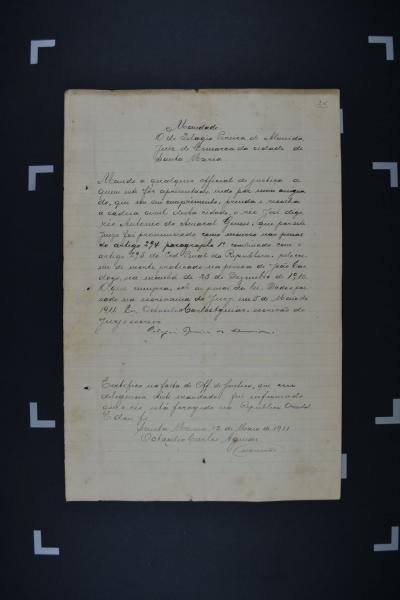 Mandado
O Dr Pelagio Pereira de Almeida,
Juiz de Comarca da cidade de
Santa Maria
Mando a qualquer official de justiça a
quem este for apresentado, indo por mim
do, que em seu cumprimento, prenda e recolha
a cadeia civil desta cidade, o réo José digo
réo Antonio do Amaral, que por este
Juizo foi pronunciado como incurso nas penas
do artigo 294 paragrapho 1º combinado com o
artigo 295 do Cod. Penal da Republica, pelo cri
me de morte praticado na pessoa de João Car
dozo, na manhã de 25 de Dezembro de 1910.
O que cumpra, sob as penas da lei. Dado e pas
sado na secretaria do Juizo em 5 de Maio de
1911. Eu, Octacilio Carlos Aguiar, escrivão do
Jury o escrevi.
Pelagio Pereira de Almeida
Certifico na falta de Off. de Justiça, que em
deligencia deste mandado fui informado
que o réo está foragido na Republica Oriental
E dou fé
Santa Maria 12 de Maio de 1911
Octacilio Carlos Aguiar
Escrivão